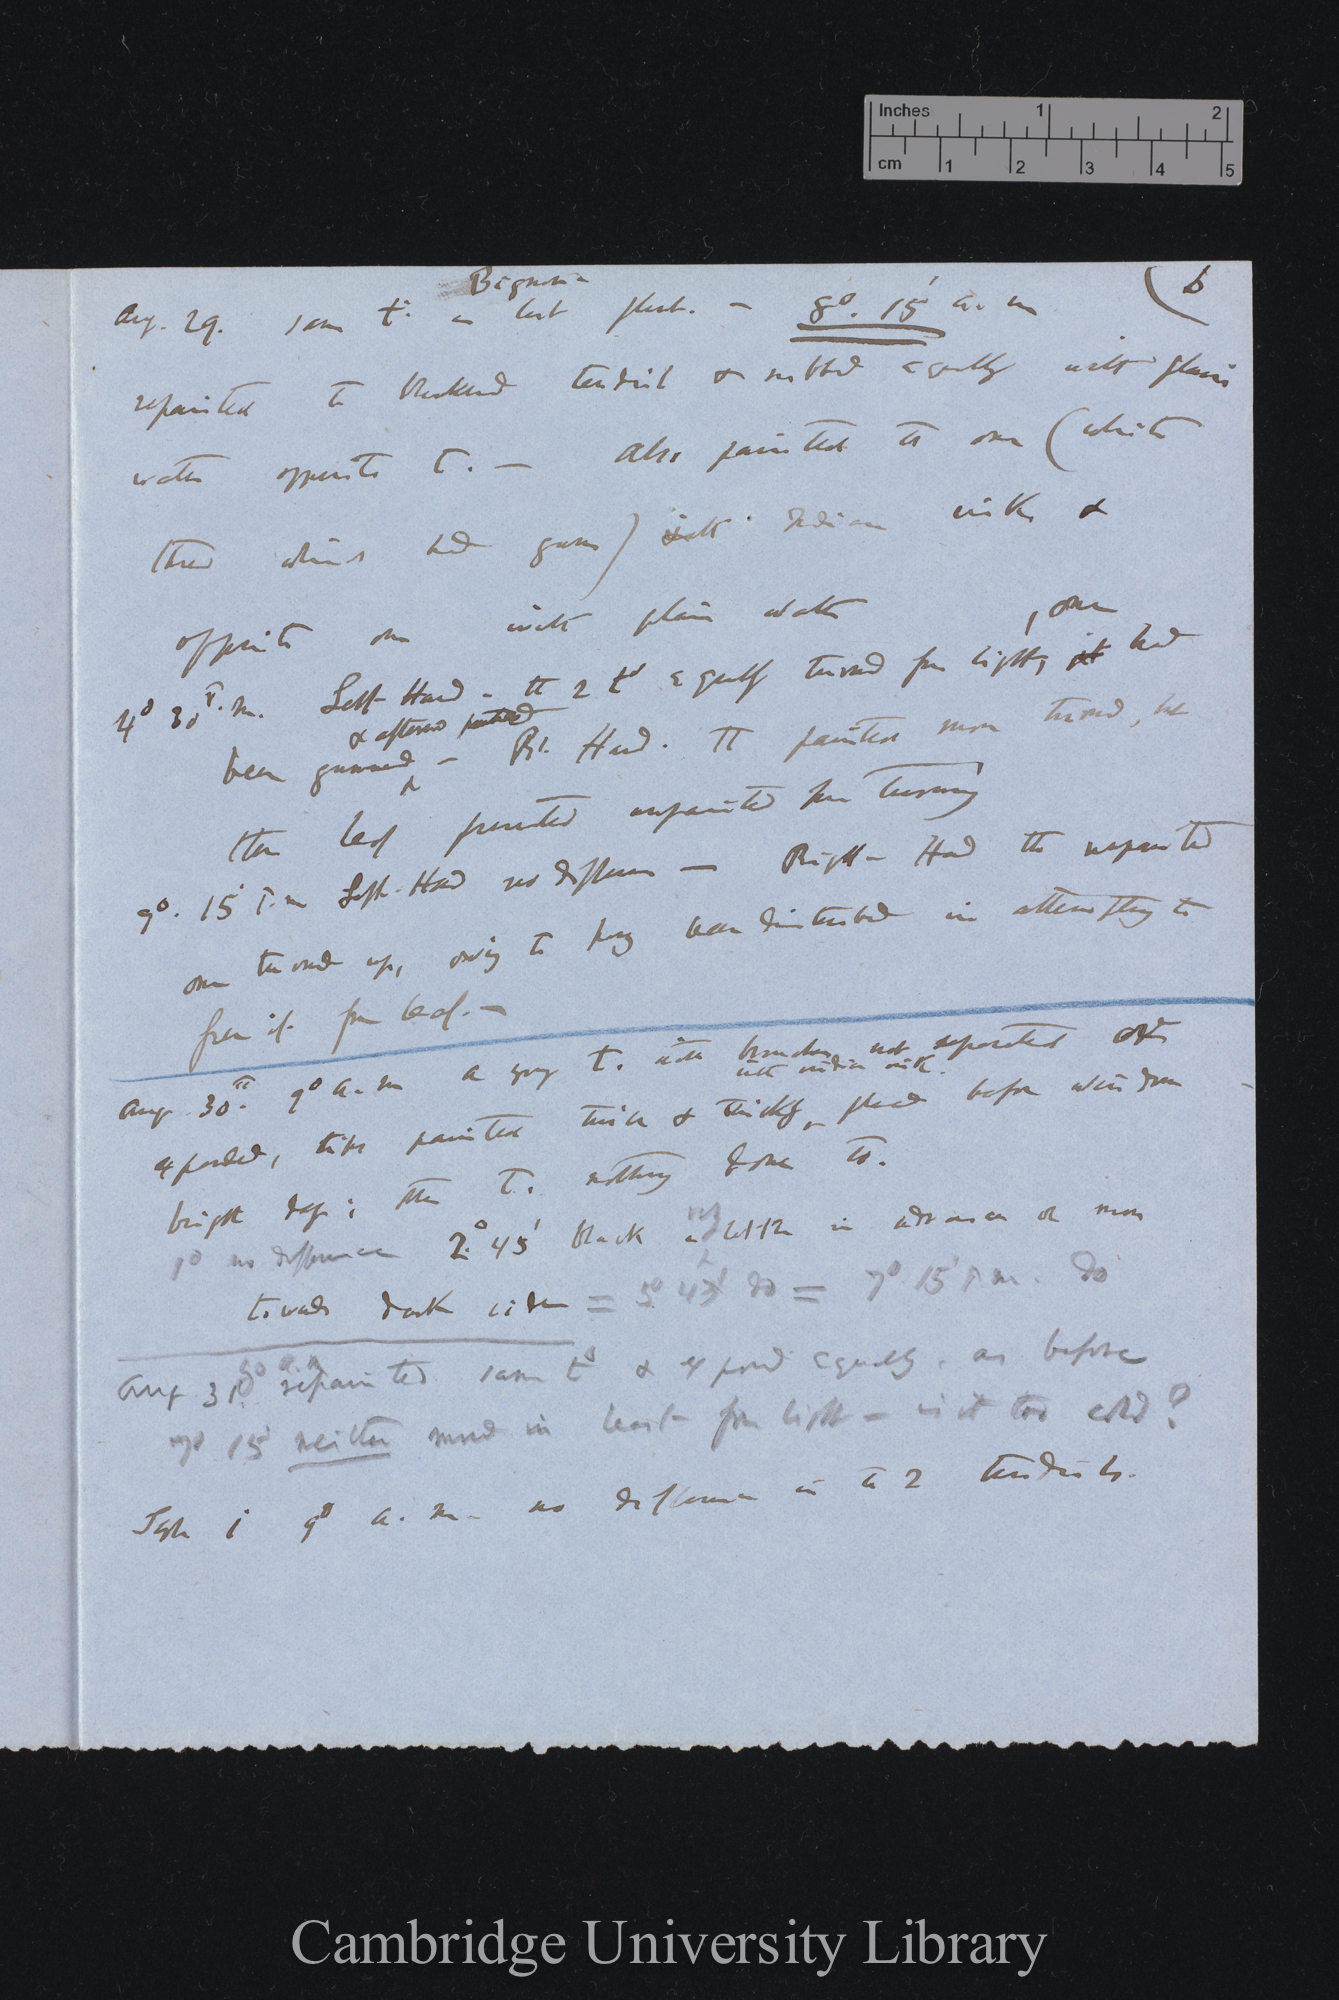 Inches 1 2
cm 1 2 3 4 5
Bignonia
(b
Aug. 29. same t. as last sheet. — 8°. 15' a. m
repainted the blackened tendril & rubbed equally with plain
water opposite t. — Also painted the one (which
had gum) with Indian ink &
opposite one with plain water
4° 30' P.m. Left Hand - the 2 t^s equally turned from light, one it had
& afterwards painted
been gummed — Rt. Hand. The painted more turned, but
then leaf prevented unpainted from turning
9°. 15' P.m Left-Hand no difference — Right-Hand the unpainted
one turned up, owing to having been disturbed in attempting to
free it from leaf. —
Aug 30. 9° a.m a young t. with branches not separated
with indian ink.
exposed, tips painted thick & thickly, placed before window
bright day; other T. nothing done to.
1° no difference 2° 45' black a little in advance or more
towards dark side = 5° 45' do = 7° 15' P.m. do
Aug 31. 8° a.m repainted same t^s & exposed equally, as before
7° 15' neither moved in least from light — is it too cold?
Sept 1 9° a. m. no difference in the 2 tendrils.
Cambridge University Library